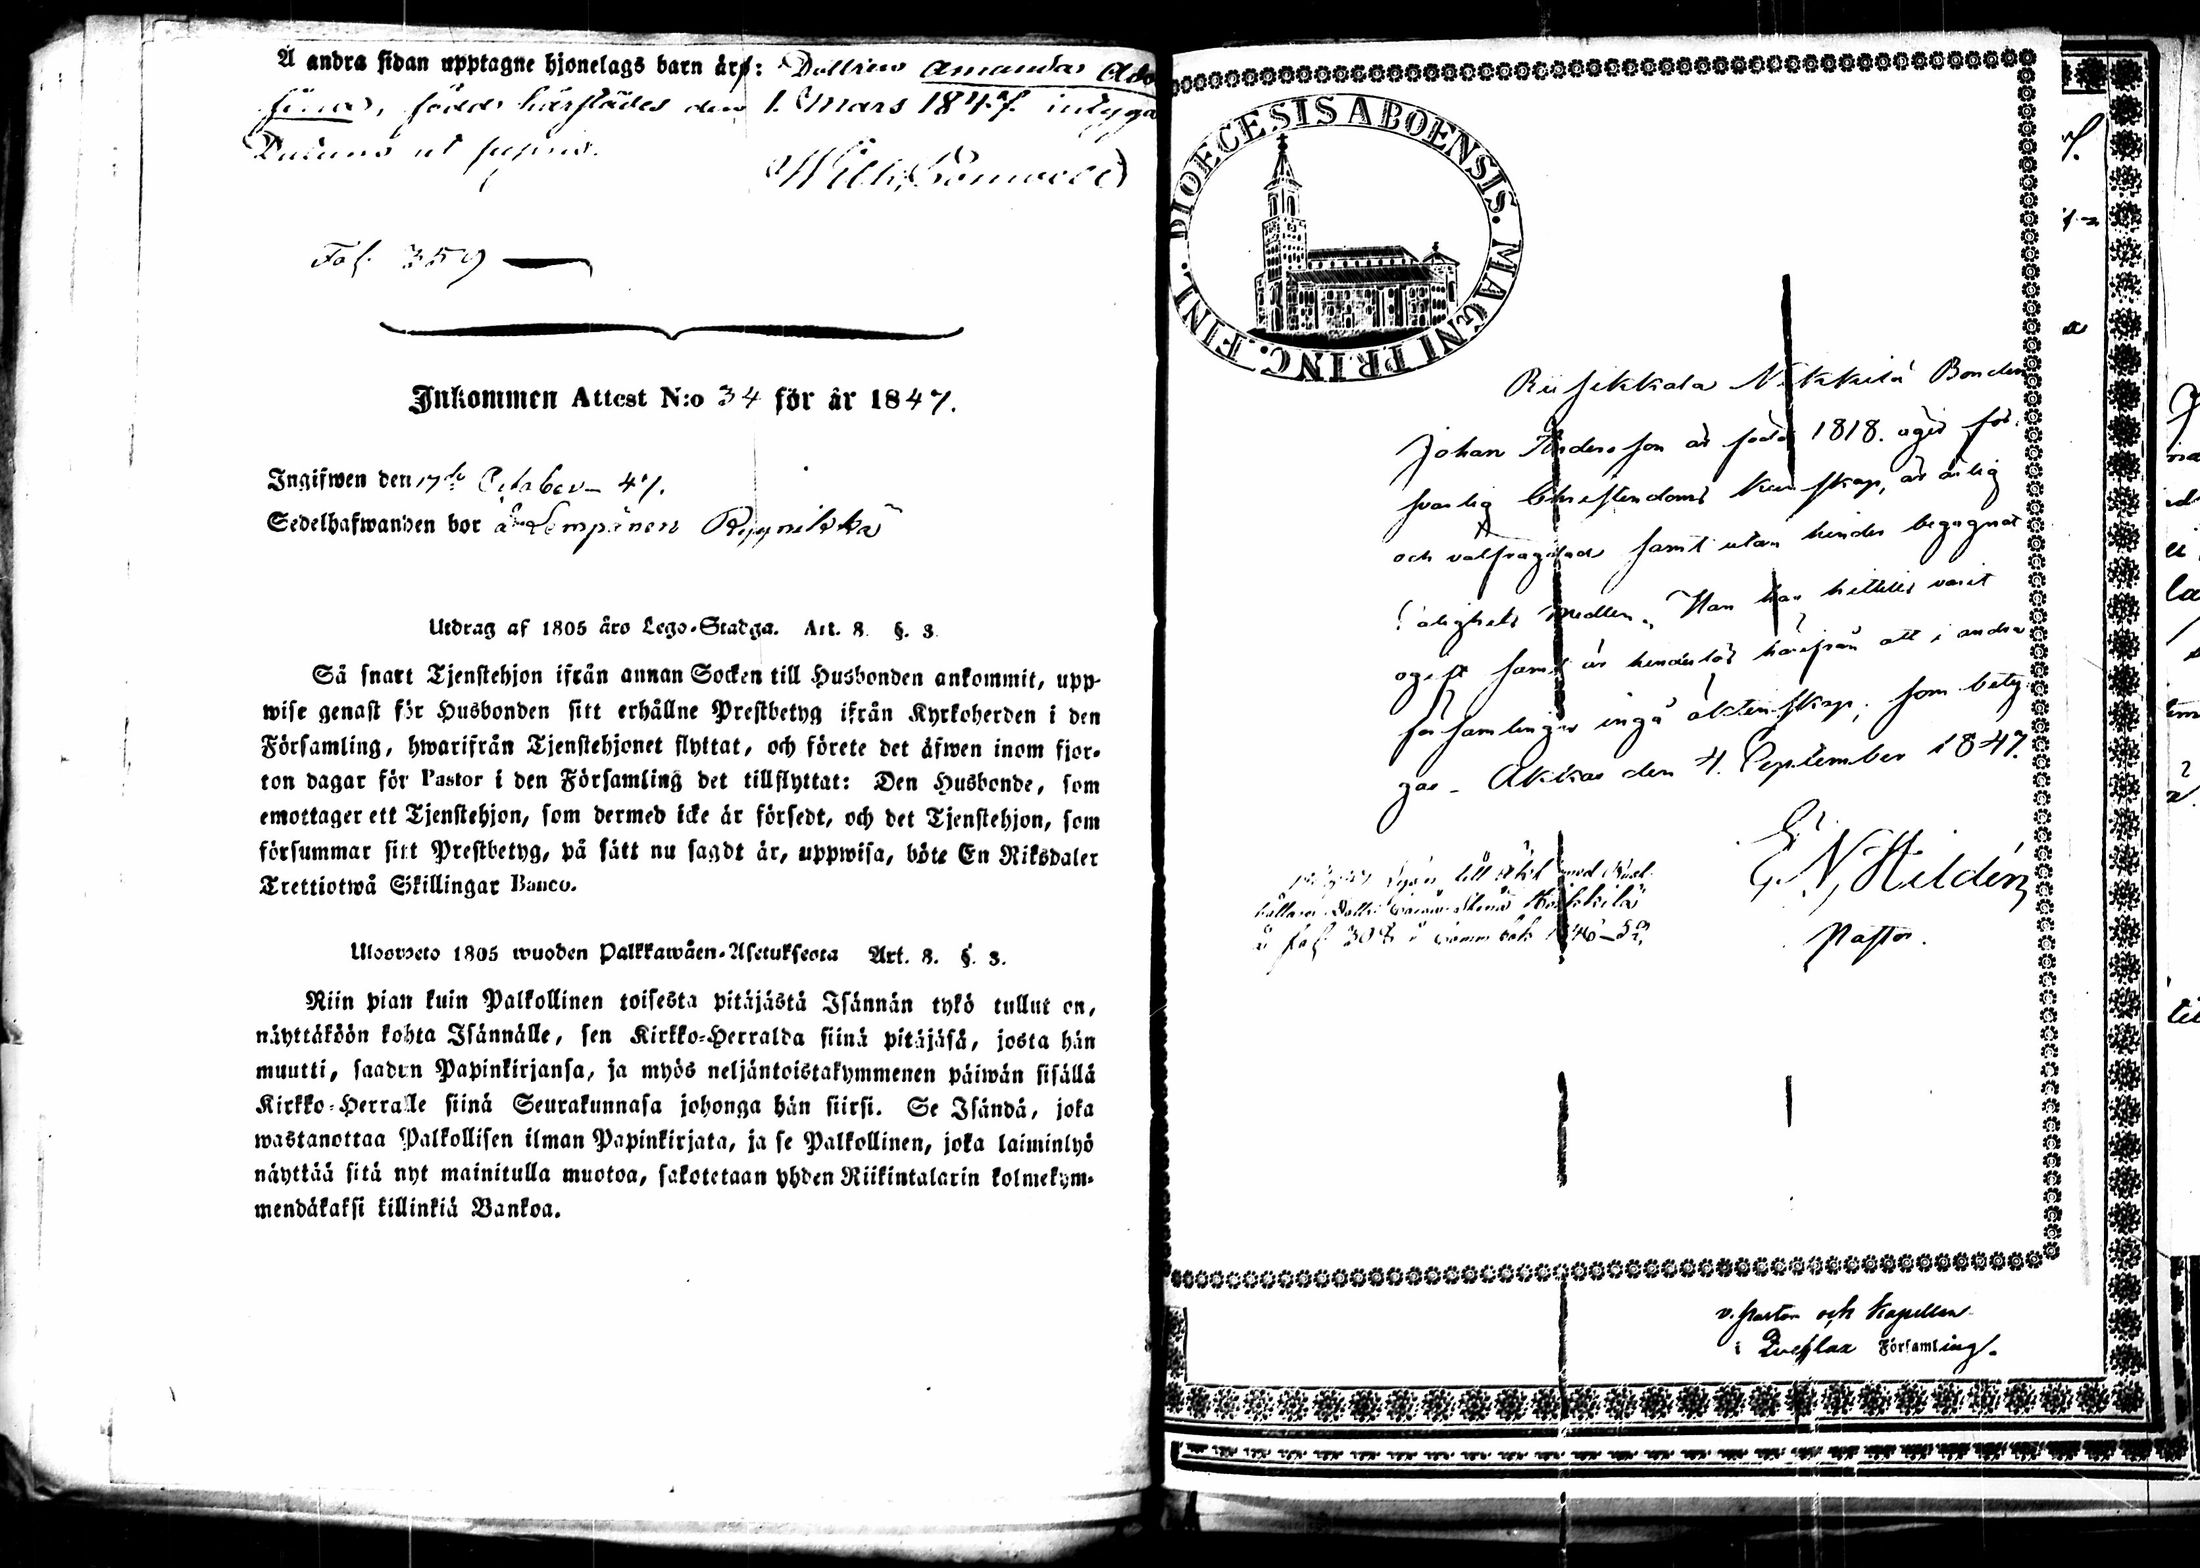 Å andra sidan upptagne hjonelags barn äro: Dottren Amanda Ado
fina, född härstädes den 1. Mars 1847. intyga
Datum ut supra.
Fol. 359
Inkommen Attest N:o 34 för år 1847.
Ingifwen den 17de October 47.
Sedelhafwanden bor å Lempänen Rypnikkä
Utdrag af 1805 års Lego-Stadga. Art. 8. §. 3.
Så snart Tjenstehjon ifrån annan Socken till Husbonden ankommit, upp-
wise genast för Husbonden sitt erhållne Prestbetyg ifrån Kyrkoherden i den
Församling, hwarifrån Tjenstehjonet flyttat, och förete det äfwen inom fjor-
ton dagar för Pastor i den Församling det tillflyttat: Den Husbonde, som
emottager ett Tjenstehjon, som dermed icke är försedt, och det Tjenstehjon, som
försummar sitt Prestbetyg, på sätt nu sagdt är, uppwisa, böte En Riksdaler
Trettiotwå Skillingar Banco.
Uloosveto 1805 wuoden Palkkawäen-Asetuksesta Art. 8. §. 3.
Niin pian kuin Palkollinen toisesta pitäjästä Isännän tykö tullut on,
näyttäköön kohta Isännälle, sen Kirkko-Herralda siinä pitäjäsä, josta hän
muutti, saadun Papinkirjansa, ja myös neljäntoistakymmenen päiwän sisällä
Kirkko-Herralle siinä Seurakunnasa johonga hän siirsi. Se Isändä, joka
wastanottaa Palkollisen ilman Papinkirjata, ja se Palkollinen, joka laiminlyö
näyttää sitä nyt mainitulla muotoa, sakotetaan yhden Riikintalarin kolmekym-
mendäkaksi killinkiä Bankoa.
DIOECESIS ABOENSIS. MAGNI PRINC. FINL.
Riisikkala Nikkilä Bonden
Johan Andersson är född 1818. äger för-
svarlig Christendoms kunskap, är ärlig
och välfrägdad samt utan hinder begagnat
Salighets medlen. Han har hittills varit
ogift samt är hinderlös härifrån att i andra
församlingar ingå äktenskap, som bety-
gas - Akkas den 4. September 1847.
E. N. Hildén
Pastor.
till äkt med Rust-
hållare Dottr. Stina Heikkilä
å fol. 308 i 1846-52
v. Pastor och Kapellan
i Qveflax Församling.